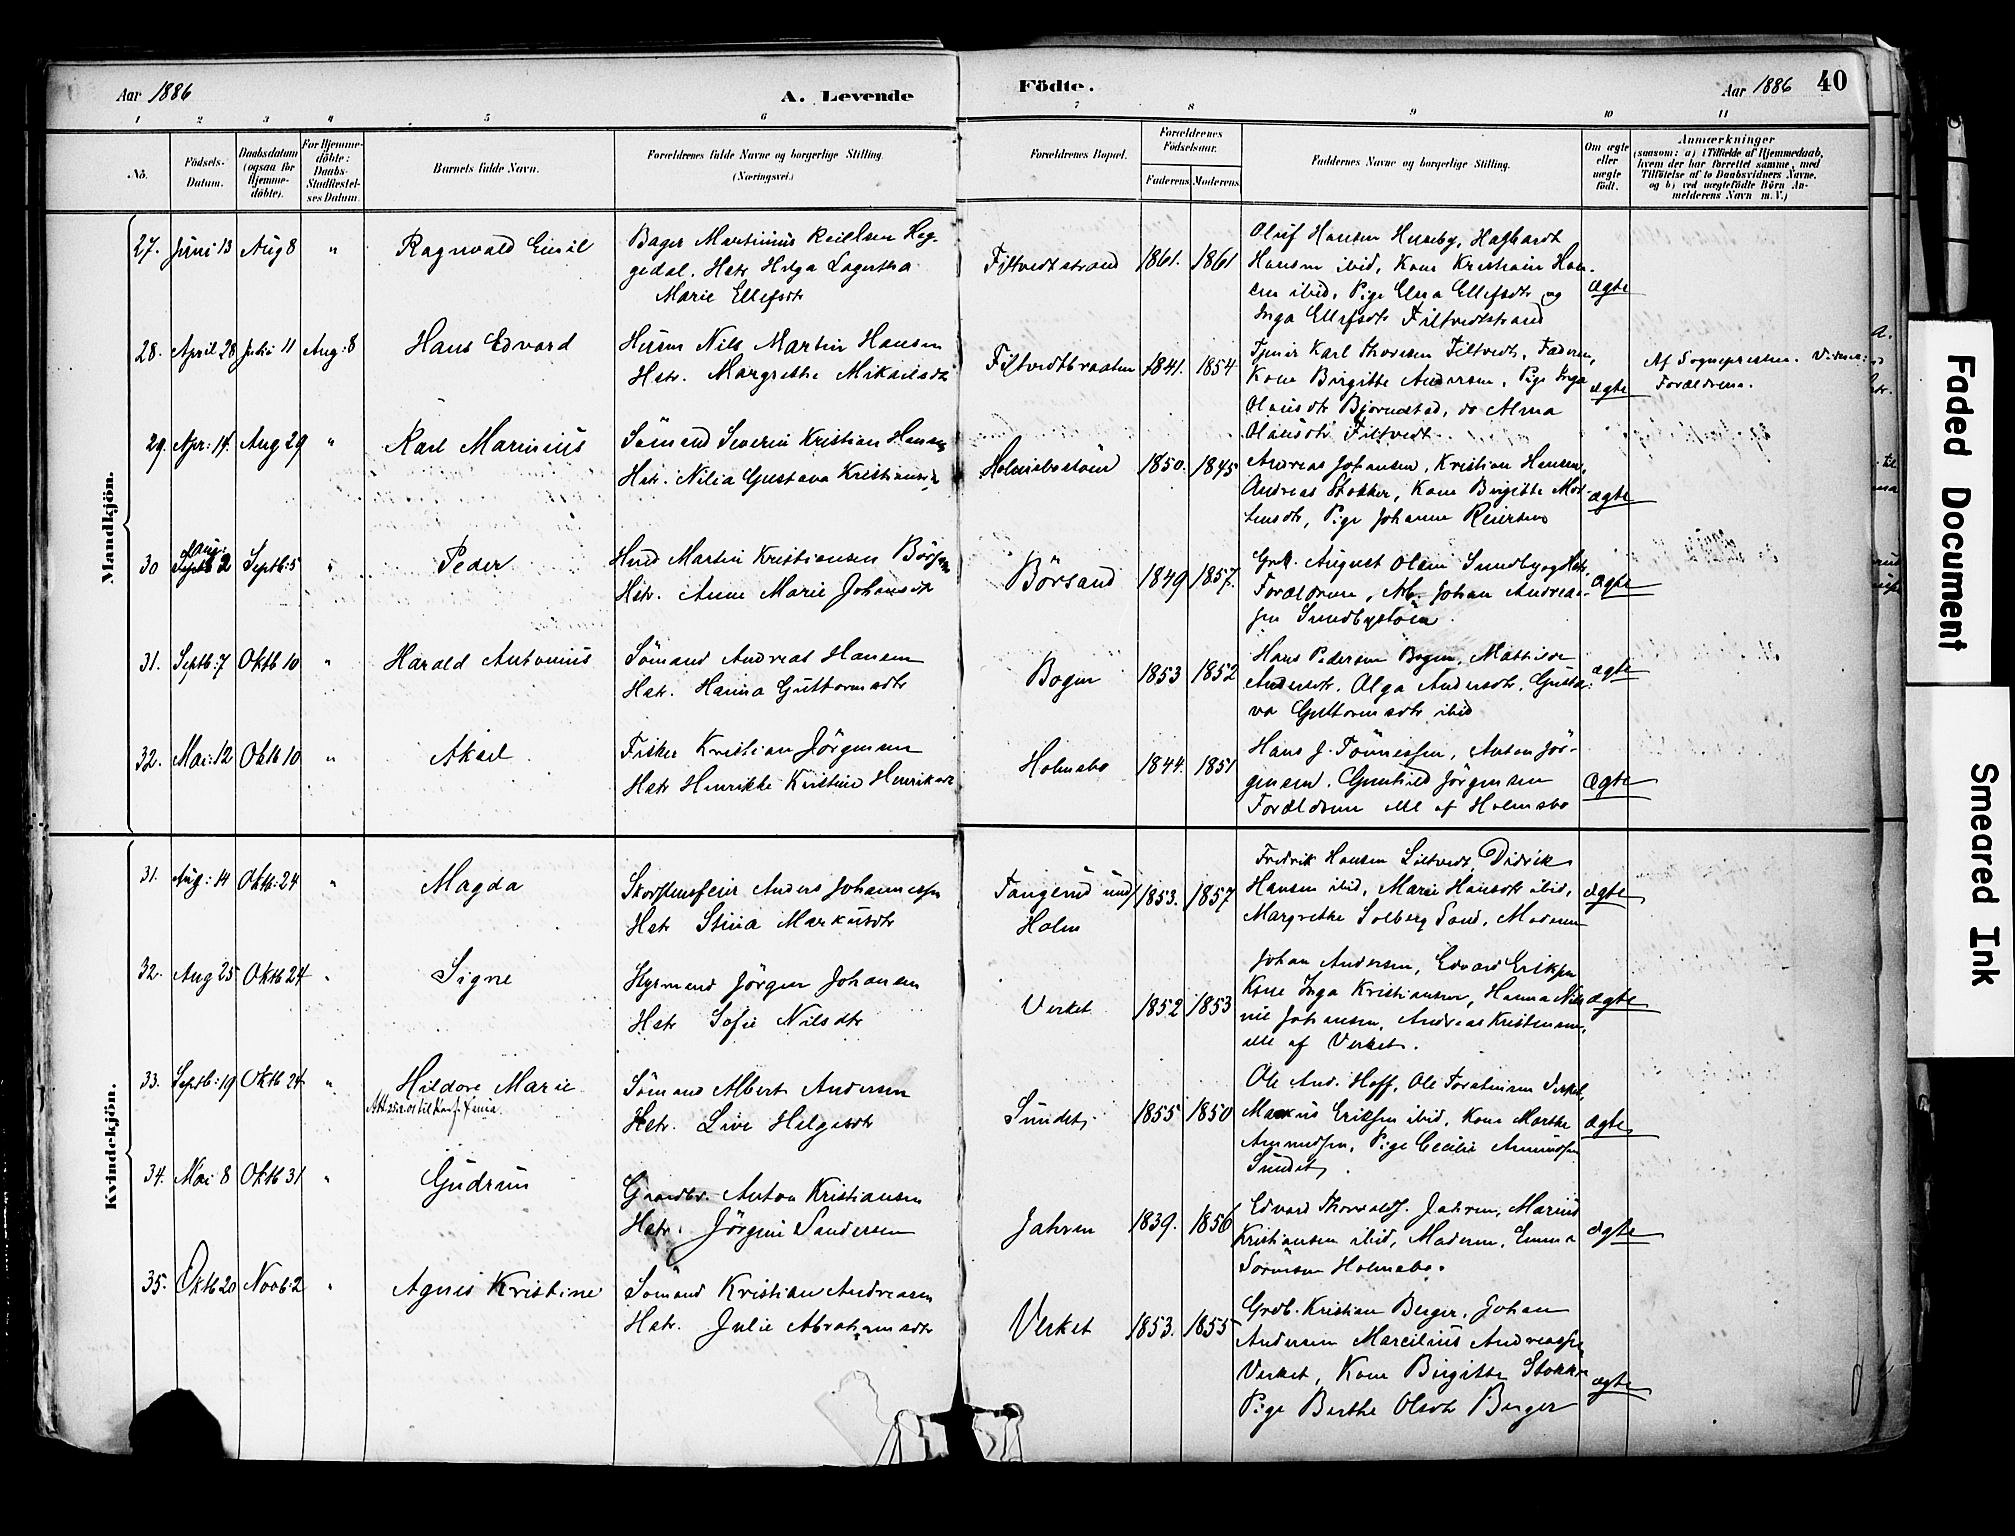 Aar 1886
A. Levende
Födte.
Aar 1886 40
1 2 3 4 5 6 7 8 9 10 11
No.
Födsels-
Datum.
Daabsdatum
(ogsaa for
Hjemme-
döbte).
For Hjemme-
döbte:
Daabs-
Stadfæstel-
ses Datum.
Barnets fulde Navn.
Forældrenes fulde Navne og borgerlige Stilling.
(Næringsvei.)
Forældrenes Bopæl.
Forældrenes
Födselsaar.
Faderens. Moderens.
Faddernes Navne og borgerlige Stilling.
Om ægte
eller
uægte
født.
Anmærkninger
(saasom: a) i Tilfælde af Hjemmedaab,
hvem der har forrettet samme, med
Tilföielse af to Daabsvidners Navne,
og b) ved uægtefödte Börn An-
melderens Navn m. V.)
Mandkjön.
27. Juni 13 Aug 8 " Ragnvald Emil
Bager Martinius Heg-
gedal. Hstr Helga Lagertha
Marie Ellefsdtr
Filtvedtstrand 1861. 1861
Oluf Hansen Huseby,
Hansen ibid, Kone Kristiane Han-
sen ibid, Pige Elna Ellefsdtr og
Inga Ellefsdtr Filtvedtstrand
ægte
28. April 28 Juli 11 Aug: 8 Hans Edvard
Husm Nils Martin Hansen
Hstr. Margrethe Mikaelsdtr
Filtvedtbraaten 1841. 1854
Tjener Karl Thoresen Filtvedt, Faderen,
Kone Birgitte Andersen, Pige Inga
Olausdtr Bjørnestad, do Alma
Olausdtr Filtvedt.
ægte
Af Sognepresten. Vidner:
Forældrene.
29. Apr: 14. Aug 29 " Karl Marinius
Sömand Severin Kristian Hansen
Hstr. Nilia Gustava Kristiansdtr
Holmsbostöen 1850. 1845
Andreas Johansen, Kristian Hansen,
Andreas Stokker, Kone Birgitte Mor-
tensdtr, Pige Johanne Reiersen
ægte
30 Aug: 2 Septb: 5 " Peder
Husm Martin Kristiansen Börsand
Hstr. Anne Marie Johansdtr
Börsand 1849 1857.
Grdb. August Olsen Sundby og Hstr.
Forældrene, Arb. Johan Andreas-
sen Sundbystöen.
ægte
31. Septb: 7 Oktb 10 " Harald Antonius
Sömand Andreas Hansen
Hstr. Hanna Guttormsdtr
Bogen 1853 1852
Hans Pedersen Bogen, Mathilde
Andersdtr. Olga Andersdtr. Gusta-
va Guttormsdtr ibid
ægte
32. Mai: 12 Oktb 10 " Aksel
Fisker Kristian Jörgensen
Hstr Henrikke Kristine Henriksen
Holmsbo 1844. 1851
Hans J. Tönnessen, Anton Jör-
gensen. Gunhild Jörgensen
Forældrene alle af Holmsbo
ægte
Kvindekjön.
31. Aug: 14 Oktb: 24 " Magda
Skorstensfeier Anders Johannessen
Hstr Stina Markusdtr
Tangerud und/
Holm
1853. 1857
Fredrik Hansen Filtvedt, Didrik
Hansen ibid, Marie Hansdtr ibid,
Margrethe Solberg Sand, Moderen
ægte
32. Aug 25 Oktb 24 " Signe
Styrmand Jörgen Johansen
Hstr Sofie Nilsdtr
Verket 1852 1853
Johan Andersen, Edvard Eriksen
Kone Inga Kristiansen, Hanna Nils
ine Johansen, Andreas Kristensen,
alle af Verket.
ægte
33. Septb: 19 Oktb 24 " Hildore Marie
Sömand Albert Andersen
Hstr. Live Helgesdtr
Sundet 1855 1850
Ole And. Hoff, Ole Torstensen Verket,
Markus Eriksen ibid, Kone Marthe
Amundsen, Pige Cecilie Amundsen
Sundet.
ægte
34. Mai 8 Oktb 31 " Gudrun
Gaardbr. Anton Kristiansen
Hstr. Jörgine Sandersen
Jahren 1839. 1856
Edvard Thorvaldsen Jahren, Marius
Kristiansen ibid, Moderen, Emma
Sörensen Holmsbo.
ægte
35. Oktb 20 Novb: 2 " Agnes Kristine
Sömand Kristian Andreasen
Hstr. Julie Abrahamsdtr
Verket 1853. 1855
Grdb. Kristian Berger, Johan
Andersen Marcilius Andreassen
Verket, Kone Birgitte Stokker
Pige Berthe Olsdtr Berger
ægte
Faded Document
Smeared Ink